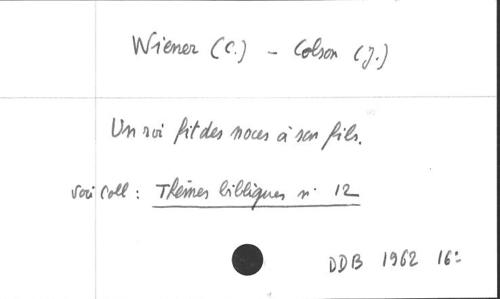 Wiener (C.) - Colson (J.)
Un roi fit des noces à son fils.
voir Coll : Thèmes bibliques n° 12
DDB 1962 16°